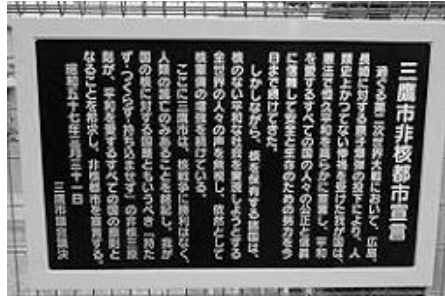 三鷹市非核都市宣言
過ぐる第二次世界大戦において、広島、
長崎に対する原子爆弾の投下により、人
類史上かつてない惨禍を受けた我が国は、
憲法で恒久平和を高らかに宣言し、平和
を愛するすべての国の人々の公正と信義
に信頼して安全と生存のための努力を今
日まで続けてきた。
しかしながら、核を保有する諸国は、
核のない平和な社会を実現しようとする
全世界の人々の声を無視し、依然として
核軍備の増強を続けている。
ここに三鷹市は、核戦争に勝利はなく、
人類の滅亡のみあることを銘記し、我が
国の核に対する国是ともいうべき「持た
ず・つくらず・持ち込ませず」の非核三原
則が、平和を愛するすべての国の原則と
なることを希求し、非核都市を宣言する。
昭和五十七年三月三十一日
三鷹市議会議決